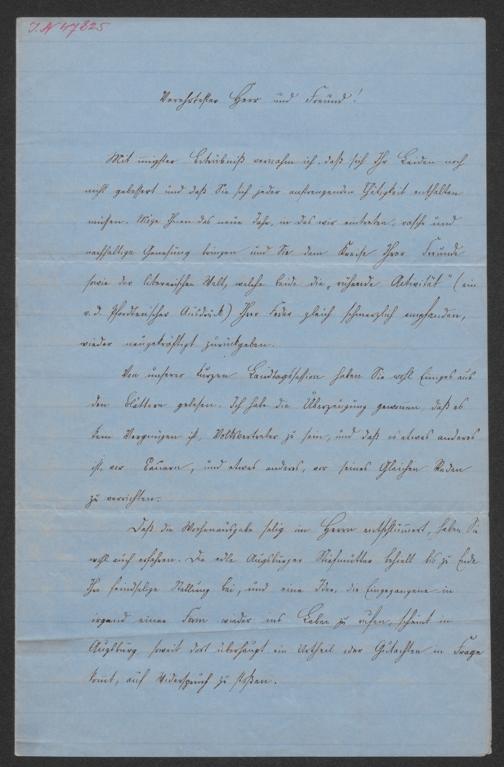 J.N 47825
Verehrtester Herr und Freund!
Mit innigster Betrübniß vernahm ich, daß sich Ihr Leiden noch
nicht gebessert und daß Sie sich jeder anstrengenden Thätigkeit enthalten
müssen. Möge Ihnen das neue Jahr, in das wir eintreten, rasche und
nachhaltige Genesung bringen und Sie dem Kreise Ihrer Freunde
sowie der literarischen Welt, welche beide die „ruhende Activität" (ein
v. d. Pfordten'scher Ausdruck) Ihrer Feder gleich schmerzlich empfanden,
wieder neugekräftigt zurückgeben.
Von unserer kurzen Landtagssession haben Sie wohl Einiges aus
den Blättern gelesen. Ich habe die Überzeugung gewonnen, daß es
kein Vergnügen ist, Volksvertreter zu sein, und daß es etwas anderes
ist, vor Bauern, und etwas anders, vor seines Gleichen Reden
zu verrichten.
Daß die Wochenausgabe selig im Herrn entschlummert, haben Sie
wohl auch erfahren. Die edle Augsburger Stiefmutter behielt bis zu Ende
Ihre feindselige Stellung bei, und eine Idee, die Eingegangene in
irgend einer Form wieder ins Leben zu rufen, scheint in
Augsburg, soweit dort überhaupt ein Urtheil oder Gutachten in Frage
kommt, auf Widerspruch zu stoßen.